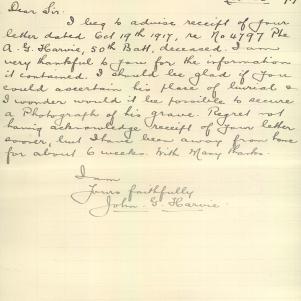 Dear Sir.
I beg to advise receipt of your
letter dated Oct 19th 1917, re No 4797 Pte
A. G. Harvie, 50th Batt, deceased. I am
very thankful to you for the information
it contained. I should be glad if you
could ascertain his place of burial &
I wonder would it be possible to secure
a Photograph of his grave. Regret not
having acknowledge receipt of your letter
sooner, but I have been away from home
for about 6 weeks. With Many thanks.
I am
Yours faithfully
John G. Harvie.